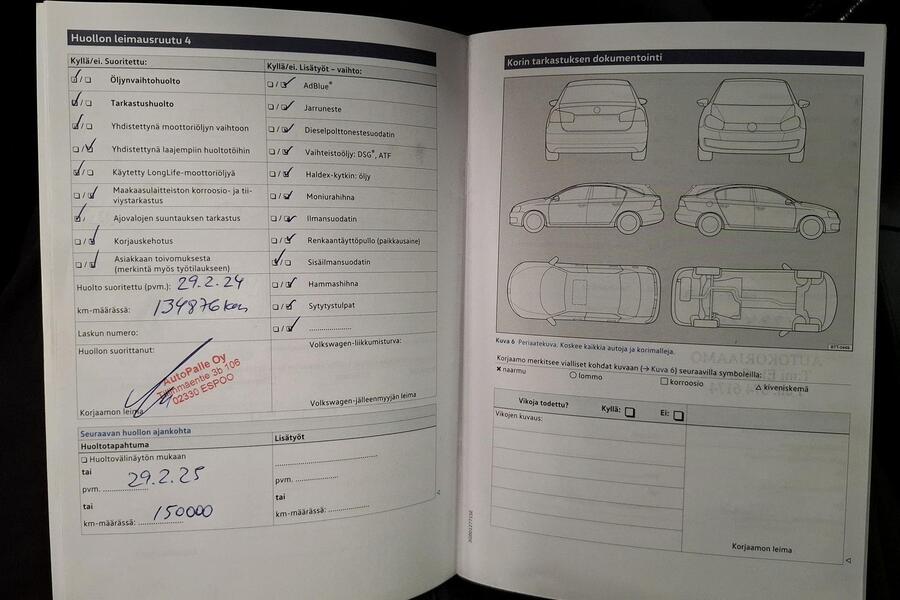 Huollon leimausruutu 4
Kyllä/ei. Suoritettu:
Öljynvaihtohuolto
Tarkastushuolto
Yhdistettynä moottoriöljyn vaihtoon
Yhdistettynä laajempiin huoltotöihin
Käytetty LongLife-moottoriöljyä
Maakaasulaitteiston korroosio- ja tii-
viystarkastus
Ajovalojen suuntauksen tarkastus
Korjauskehotus
Asiakkaan toivomuksesta
(merkintä myös työtilaukseen)
Huolto suoritettu (pvm.): 29.2.24
km-määrässä: 134876 km
Laskun numero:
Huollon suorittanut:
AutoPalle Oy
3b 106
02330 ESPOO
Korjaamon leima
Kyllä/ei. Lisätyöt – vaihto:
AdBlue®
Jarruneste
Dieselpolttonestesuodatin
Vaihteistoöljy: DSG®, ATF
Haldex-kytkin: öljy
Moniurahihna
Ilmansuodatin
Renkaantäyttöpullo (paikkausaine)
Sisäilmansuodatin
Hammashihna
Sytytystulpat
....................
Volkswagen-liikkumisturva:
Volkswagen-jälleenmyyjän leima
Seuraavan huollon ajankohta
Huoltotapahtuma
Huoltovälinäytön mukaan
tai
pvm. 29.2.25
tai
km-määrässä: 150000
Lisätyöt
pvm. ....................
tai
km-määrässä: ....................
Korin tarkastuksen dokumentointi
Kuva 6 Periaatekuva. Koskee kaikkia autoja ja korimalleja.
Korjaamo merkitsee vialliset kohdat kuvaan (→ Kuva 6) seuraavilla symboleilla:
× naarmu ○ lommo □ korroosio △ kiveniskemä
Vikoja todettu? Kyllä: □ Ei: □
Vikojen kuvaus:
Korjaamon leima